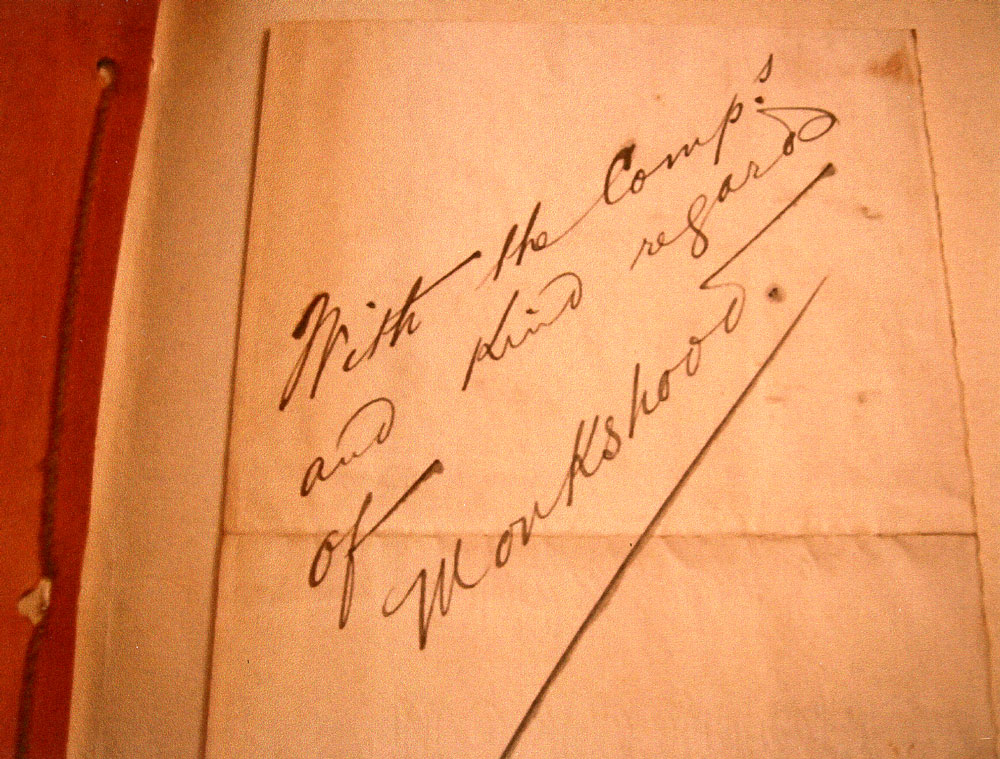 With the Comp.s
and kind regard
of
Monkshood.